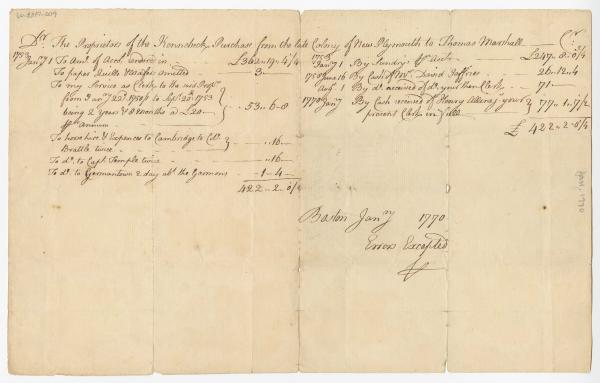 Dr. The Proprietors of the Kennebeck Purchase from the late Colony of New Plymouth to Thomas Marshall Cr.
1753
Jany 1 To Amt. of Acct. £362..19..4¼
To paper Quills Wafers omitted 3
To my Service as Clerk to the said Propes
from Jany 22d. 1750/ to Septr. 20th 1753
being 2 Years & 8 Months a £20 53..6..8
annum
To horse hire & Expences to Cambridge to Colo.
Brattle twice ..16
To do. to Capt. Temple twice ..16
To do. to Germantown 2 day abt. the Garmons 1..4
422..2..0¼
Jany 1 By Sundry Acct. £247..8..0¼
June 16 By Cash of Mr. David Jeffries 26..12..4
Aug. 1 By do. received of do. your then Clerk 71
1770 Jany By Cash received of Henry Alline your
present Clerk in full 77..1..7½
£ 422..2..0¼
Boston Jany 1770
Errors Excepted
Jan. 1770